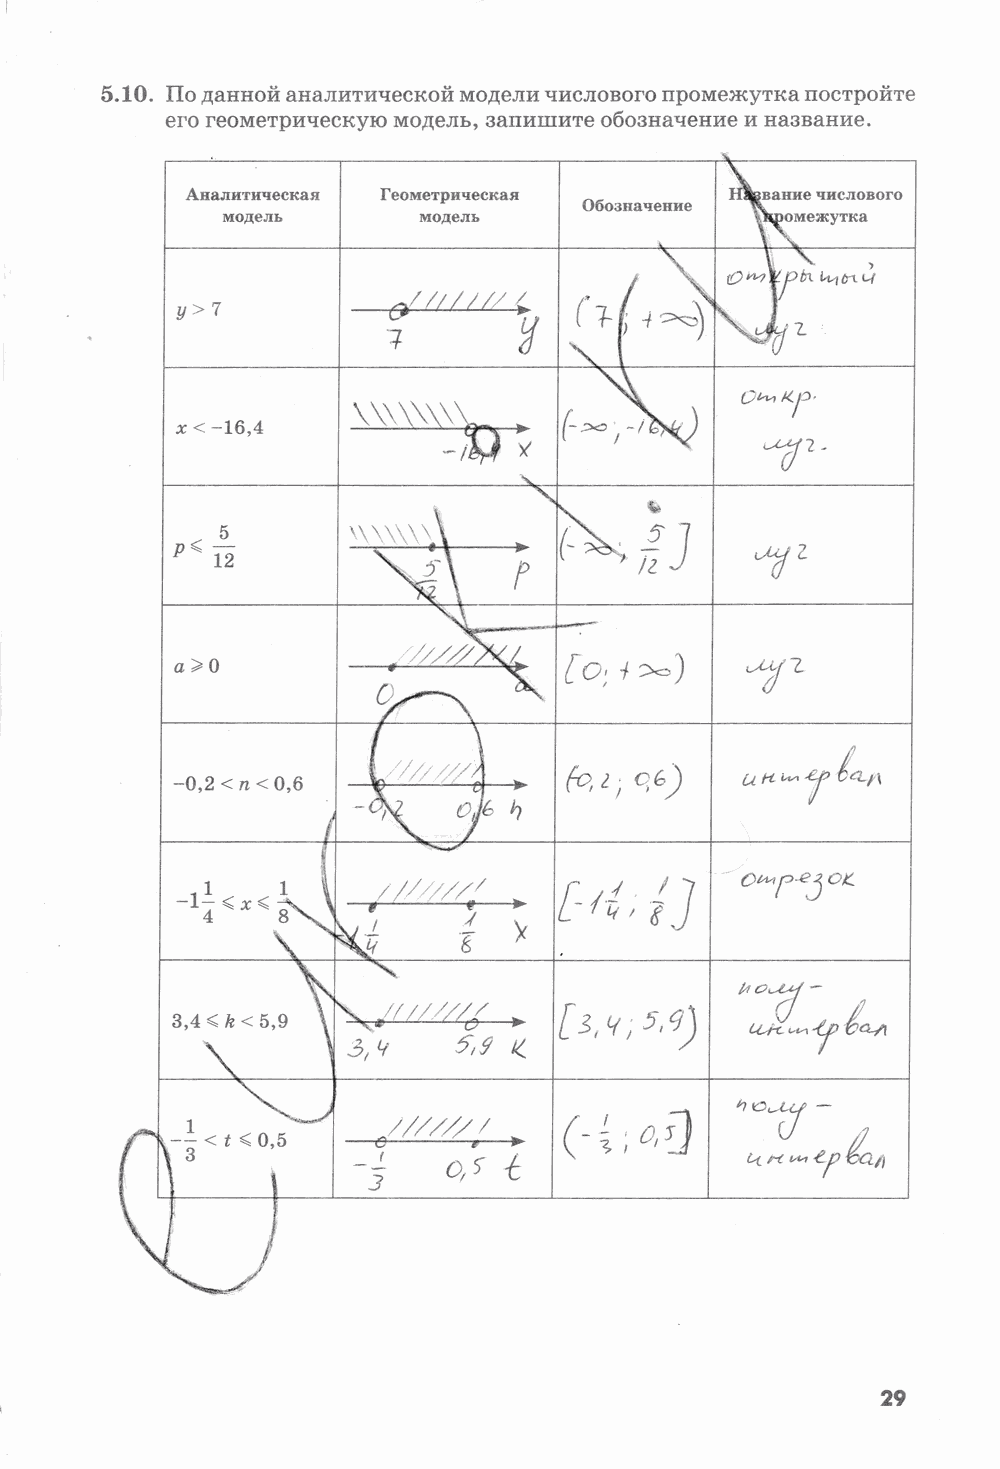 5.10. По данной аналитической модели числового промежутка постройте
его геометрическую модель, запишите обозначение и название.
Аналитическая
модель
Геометрическая
модель
Обозначение
Название числового
промежутка
y > 7
7 y
(7; +∞)
открытый
луч
x < −16,4
−16,4 x
(−∞; −16,4)
откр.
луч.
p ⩽ 5/12
5/12 p
(−∞; 5/12]
луч
a ⩾ 0
0 a
[0; +∞)
луч
−0,2 < n < 0,6
−0,2 0,6 n
(−0,2; 0,6)
интервал
−1 1/4 ⩽ x ⩽ 1/8
−1 1/4 1/8 x
[−1 1/4; 1/8]
отрезок
3,4 ⩽ k < 5,9
3,4 5,9 k
[3,4; 5,9)
полу-
интервал
−1/3 < t ⩽ 0,5
−1/3 0,5 t
(−1/3; 0,5]
полу-
интервал
29